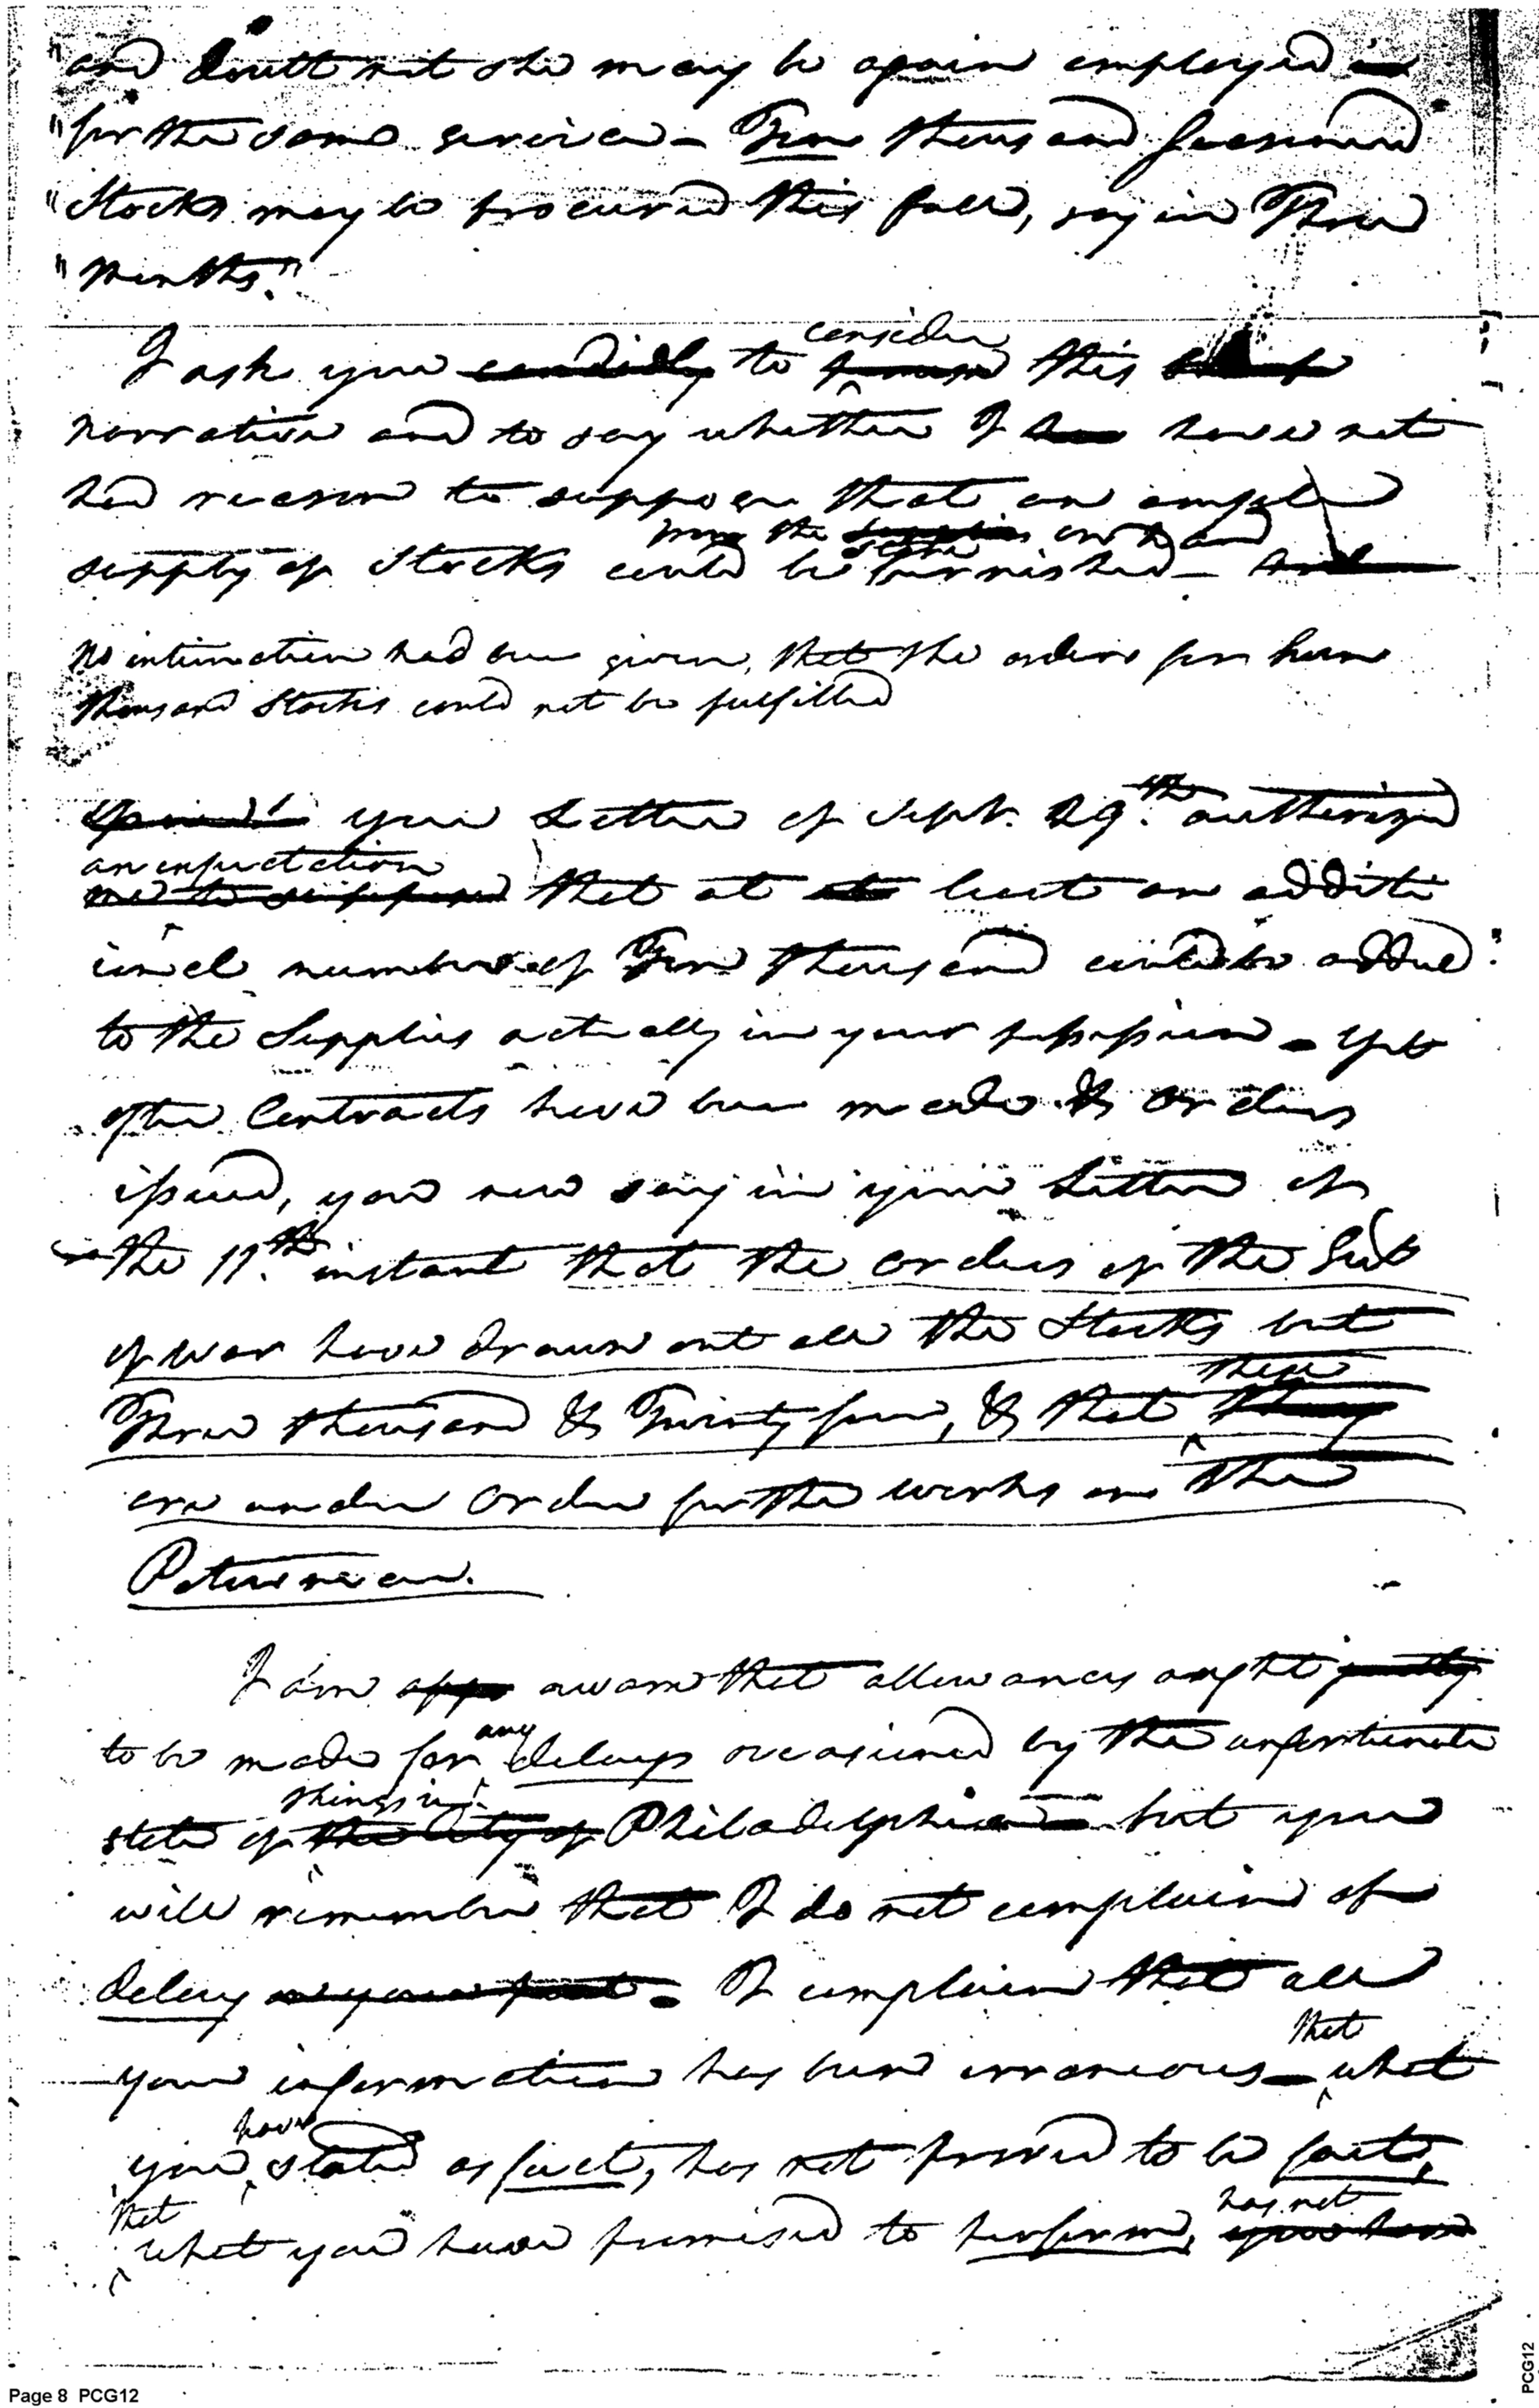 "and doubt not she may be again employed in
"for the same service – Ten thousand seasoned
"Stocks may be procured this fall, say in Three
"Months."
consider
I ask you candidly to this
narrative and to say whether I have not
had reason to suppose that an ample
from the supplies on hand
supply of Stocks could be furnished –
No intimation had been given, that the orders for
thousand Stocks could not be fulfilled
your Letter of Sept. 29.th authorized
an expectation
me to suppose that at least an addit
ional number of Ten thousand could be added
to the Supplies actually in your possession – yet
after Contracts have been made & orders
issued, you now say in your Letter of
the 11.th instant that the orders of the Sect
of War have drawn out all the Stocks but
these
Three thousand & Twenty four, & that they
are under order for the works on the
Potowmack.
I am aware that allowances ought justly
any
to be made for delays occasioned by the unfortunate
things in
state of the City of Philadelphia – but you
will remember that I do not complain of
delay on your part – I complain that all
that
your information has been erroneous – what
have
you stated as fact, has not proved to be fact,
that
has not
what you have promised to perform, you have
Page 8 PCG12
PCG12